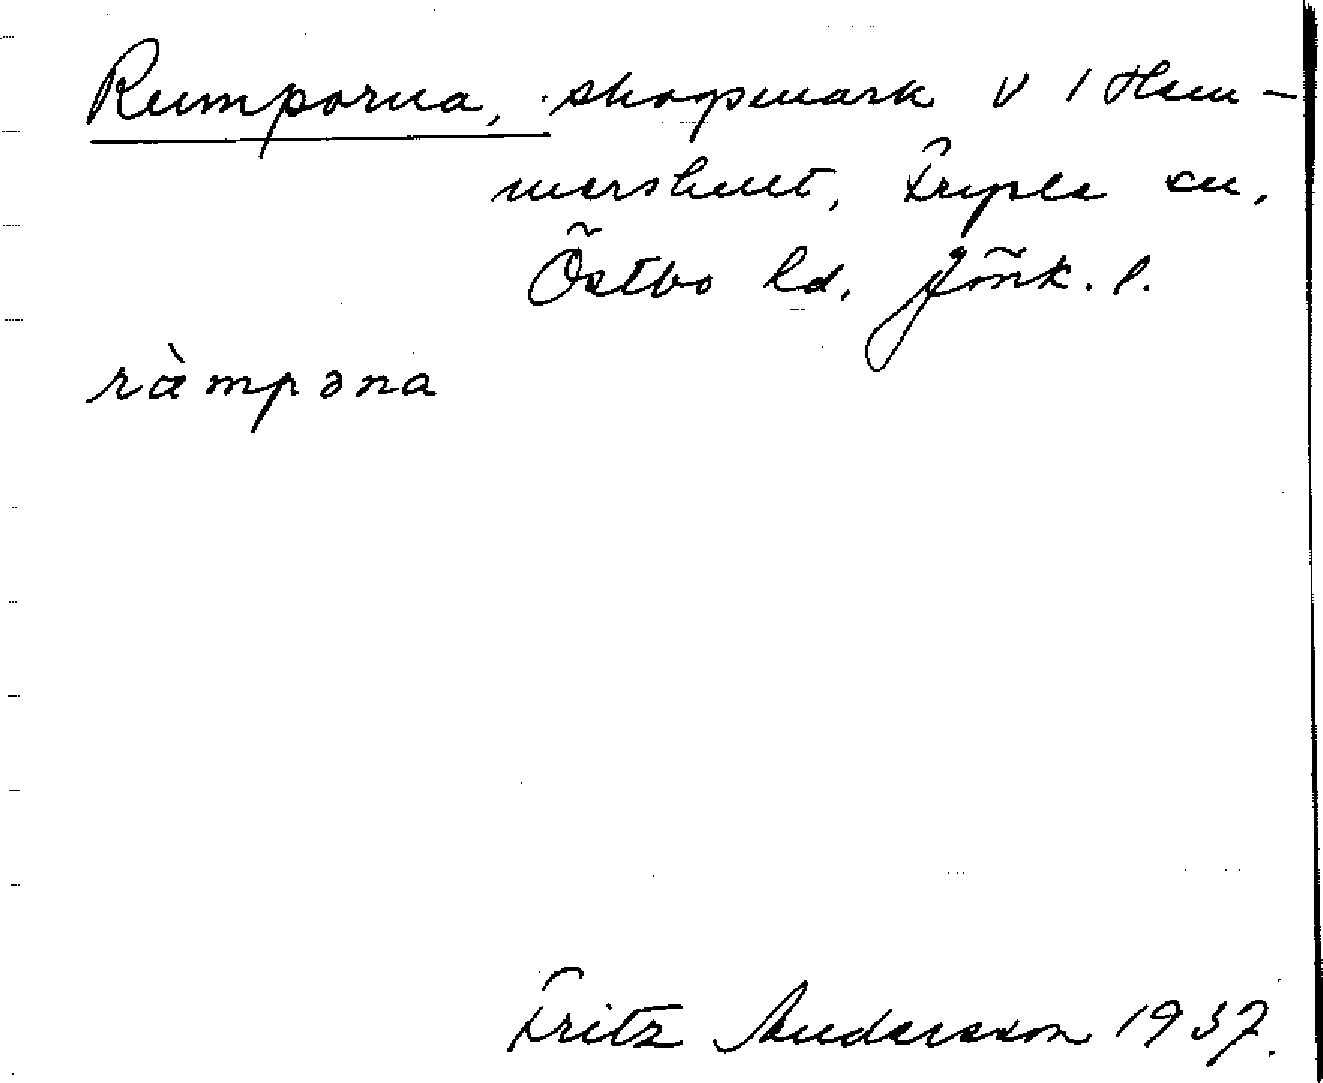 Rumporna, skogsmark V 1 Hem-
mershult, Fryele sn,
Östbo hd, Jönk. l.
ràmpəna
Fritz Andersson 1937.